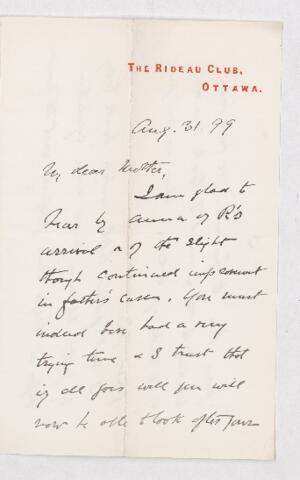 THE RIDEAU CLUB,
OTTAWA.
Aug. 31. 99
My dear Mother,
I am glad to
hear by Anna of R's
arrival & of the slight
though continued improvement
in father's case. You must
indeed have had a very
trying time & I trust that
if all goes well you will
now be able to look after your